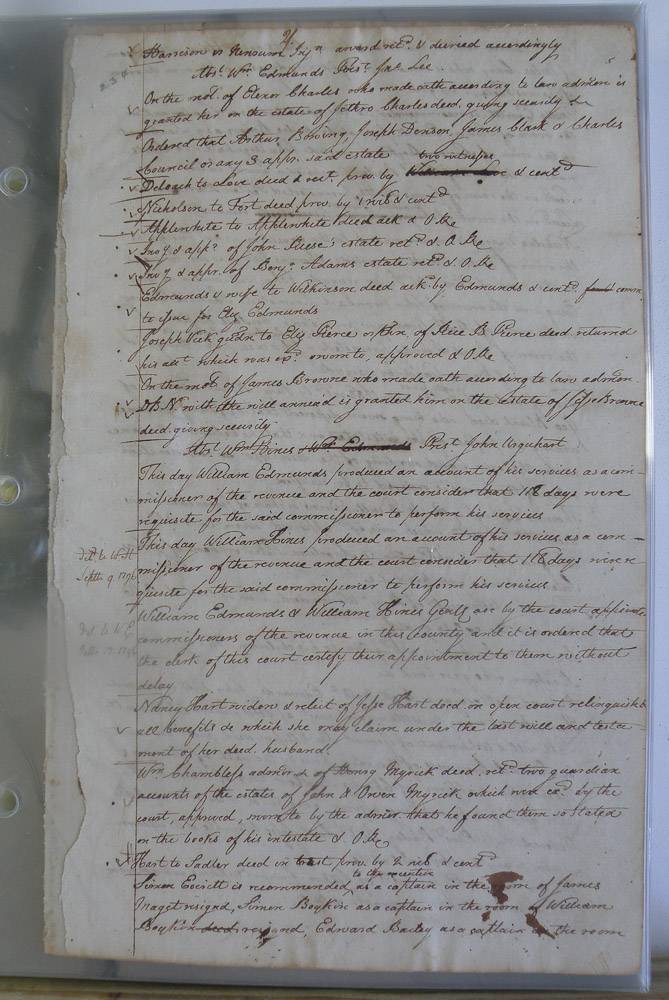 Harrison vs Ransom Injn award retd & decreed accordingly
Abst. Wm Edmunds Prest. Jas. Lee
On the mot. of Elenor Charles who made oath according to law admōn is
granted her on the estate of Jethro Charles deed. giving security &c
Ordered that Arthur Bowing, Joseph Denson, James Clark & Charles
Council or any 3 appr. said estate
Deloach to Love deed & rect. prov. by two witnesses & contd
Nicholson to Fort deed prov. by 1 wits & contd
Applewhite to Applewhite deed ack & O Re
Invy & appt of John Reese's estate retd & O Re
Invy & appr. of Benja. Adams estate retd & O Re
Edmunds & wife to Wilkinson deed ack. by Edmunds & contd comn.
to issue for Edmunds
Joseph Vick gudn to Pierce orphn. of Rice B Pierce deed. returned
his acct. which was exd. sworn to, approved & O Re
On the mot. of James Browne who made oath according to law admōn.
D B N with the will annexd is granted him on the Estate of Browne
deed. giving security
Abst. Wm Hines & Wm Edmunds Prest. John Urquhart
This day William Edmunds produced an account of his services as a com-
missioner of the revenue and the court consider that 118 days were
requisite for the said commissioner to perform his services
This day William Hines produced an account of his services as a com-
missioner of the revenue and the court consider that 118 days were re
quisite for the said commissioner to perform his services
William Edmunds & William Hines Gentl are by the court appointed
commissioners of the revenue in this county and it is ordered that
the clerk of this court certify their appointment to them without
delay
Nancy Hart widow & relict of Jesse Hart deed. in open court relinquishd
all benefits &c which she may claim under the last will and testa-
ment of her deed. husband
Wm. Chambless admōr & of Henry Myrick deed. retd. two guardian
accounts of the estates of John & Owen Myrick which were exd. by the
court, approved, sworn to by the admōr. that he found them so stated
on the books of his intestate & O Re
Hart to Sadler deed in trust prov. by 2 wits & contd
to the executive
Simon Everitt is recommended as a captain in the room of James
Maget resigned, Simon Boykin as a captain in the room of William
Boykin deed resigned, Edward Bailey as a captain in the room
Septr. 9. 1796